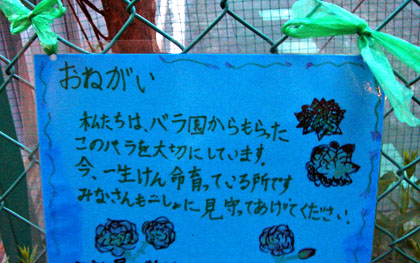 おねがい
私たちは、バラ園からもらった
このバラを大切にしています。
今、一生けん命育っている所です
みなさんもいっしょに見守ってあげてください。